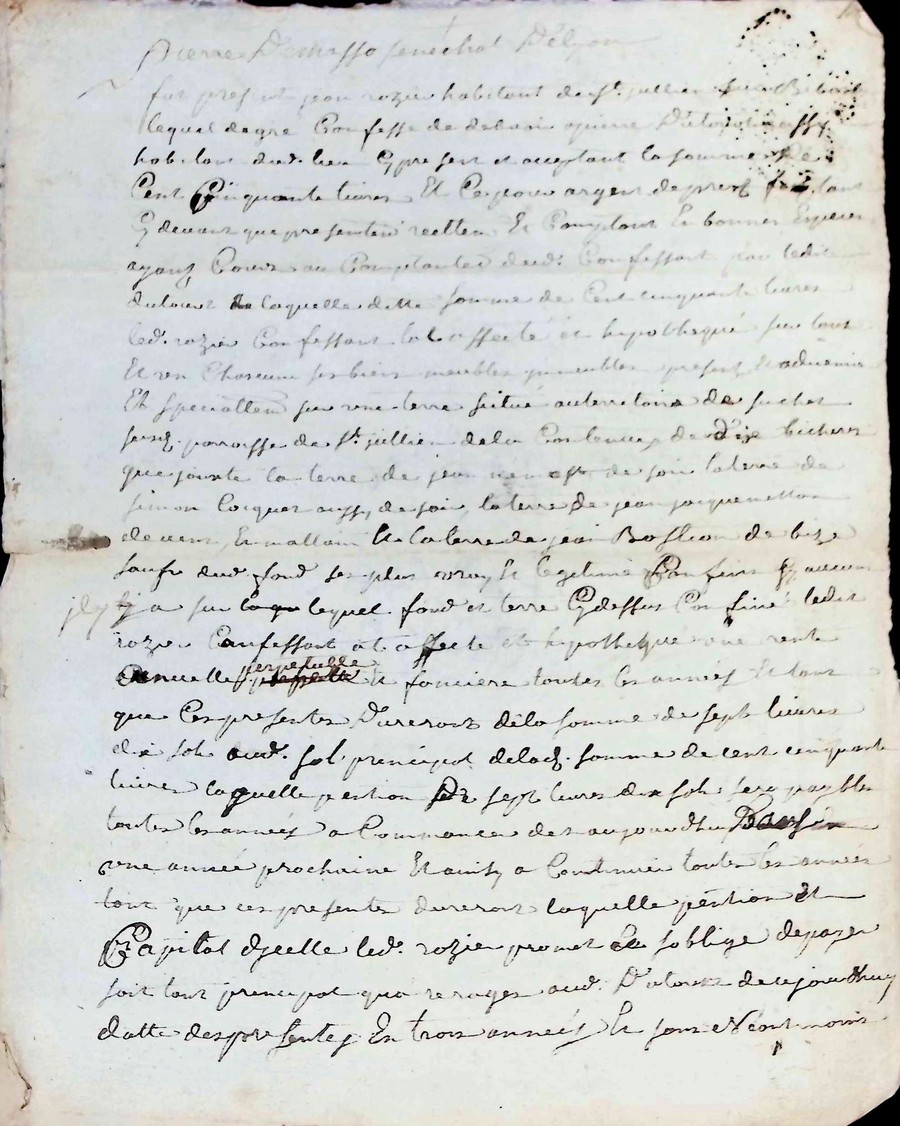 Pierre Demasso senechal Delyon
fut present jean rozier habitant de st. jullien
lequel de gre Confesse de debvoir a pierre Dutour aussy
habitant dud. lieu Cy present et acceptant la somme De
Cent Cinquante livres Et Ce pour argent de prest
Cy devant que presentem reellem Et Comptant En bonnes Especes
ayant Cours au Comptantes dud. Confessant par ledit
dutour de laquelle ditte somme de Cent cinquante livres
led. rozier Confessant lat affecté et hypothequé sur tous
Et un Chascun ses biens meubles immeubles present Et advenir
Et speciallem sur une terre situé au territoire de suchet
susd. parroisse de St. jullien de la Contenue de Dix bicheres
que jouxte la terre de jean de soir la terre de
simon Cocquet aussy de soir, la terre de jean jacquemetton
de vent, Et mattain Et la terre de jean de bize
saufs dud. fond ses plus vray Et legetime Confins sy aucuns
il y a sur lequel fond et terre Cydessus Confiné ledit
rozier Confessant at affecte et hypotheque une rente
annuelle perpetuelle Et fonciere toutes les années Et tant
que Ces presentes Dureront de la somme de sept livres
dix sols aud. sol principal de lad. somme de cent cinquante
livres laquelle pention De sept livres dix sols sera payable
toutes les années a Commancé des aujourdhuy En
une année prochaine Et ainsy a Continuer toutes les années
tant que ces presentes dureront laquelle pention Et
Capital dycelle led. rozier promet Et soblige de payer
soit tant principal que rerages aud. Dutour de cejourdhuy
datte des presentes En trois années Et sans Neantmoins